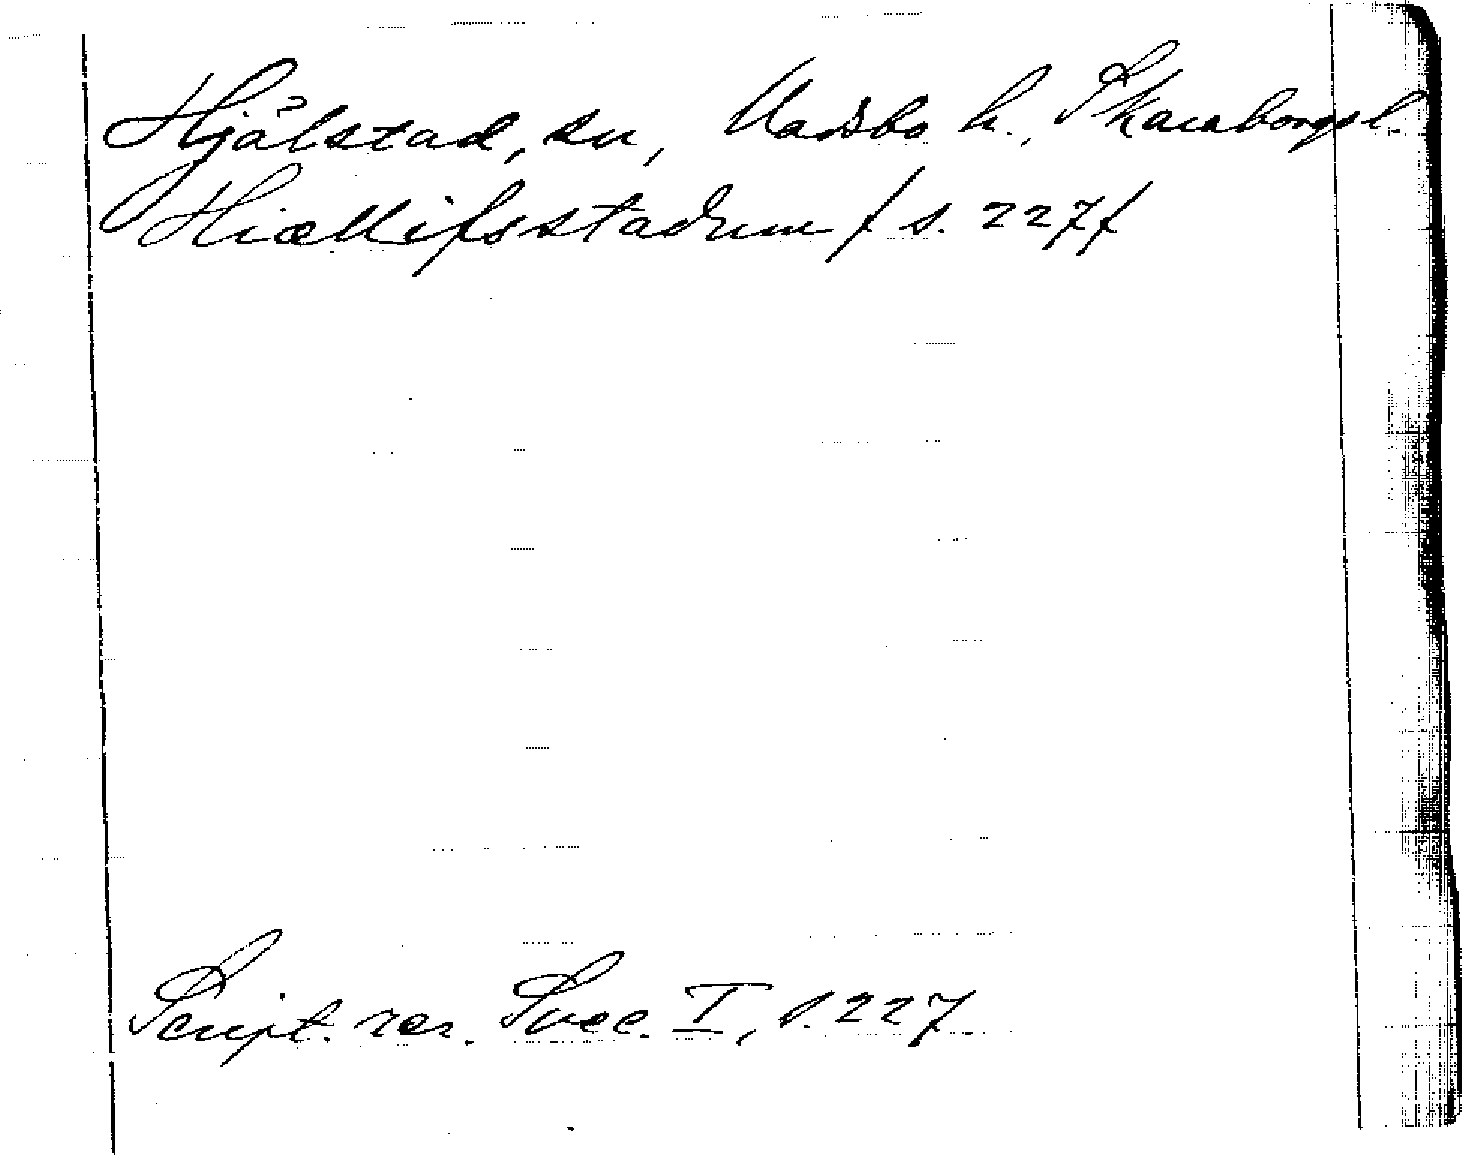 Hjälstad, sn, Vadsbo h., Skaraborgs l.
Hiællifsstadum / s. 227/
Script. rer. Svec. I, s. 227